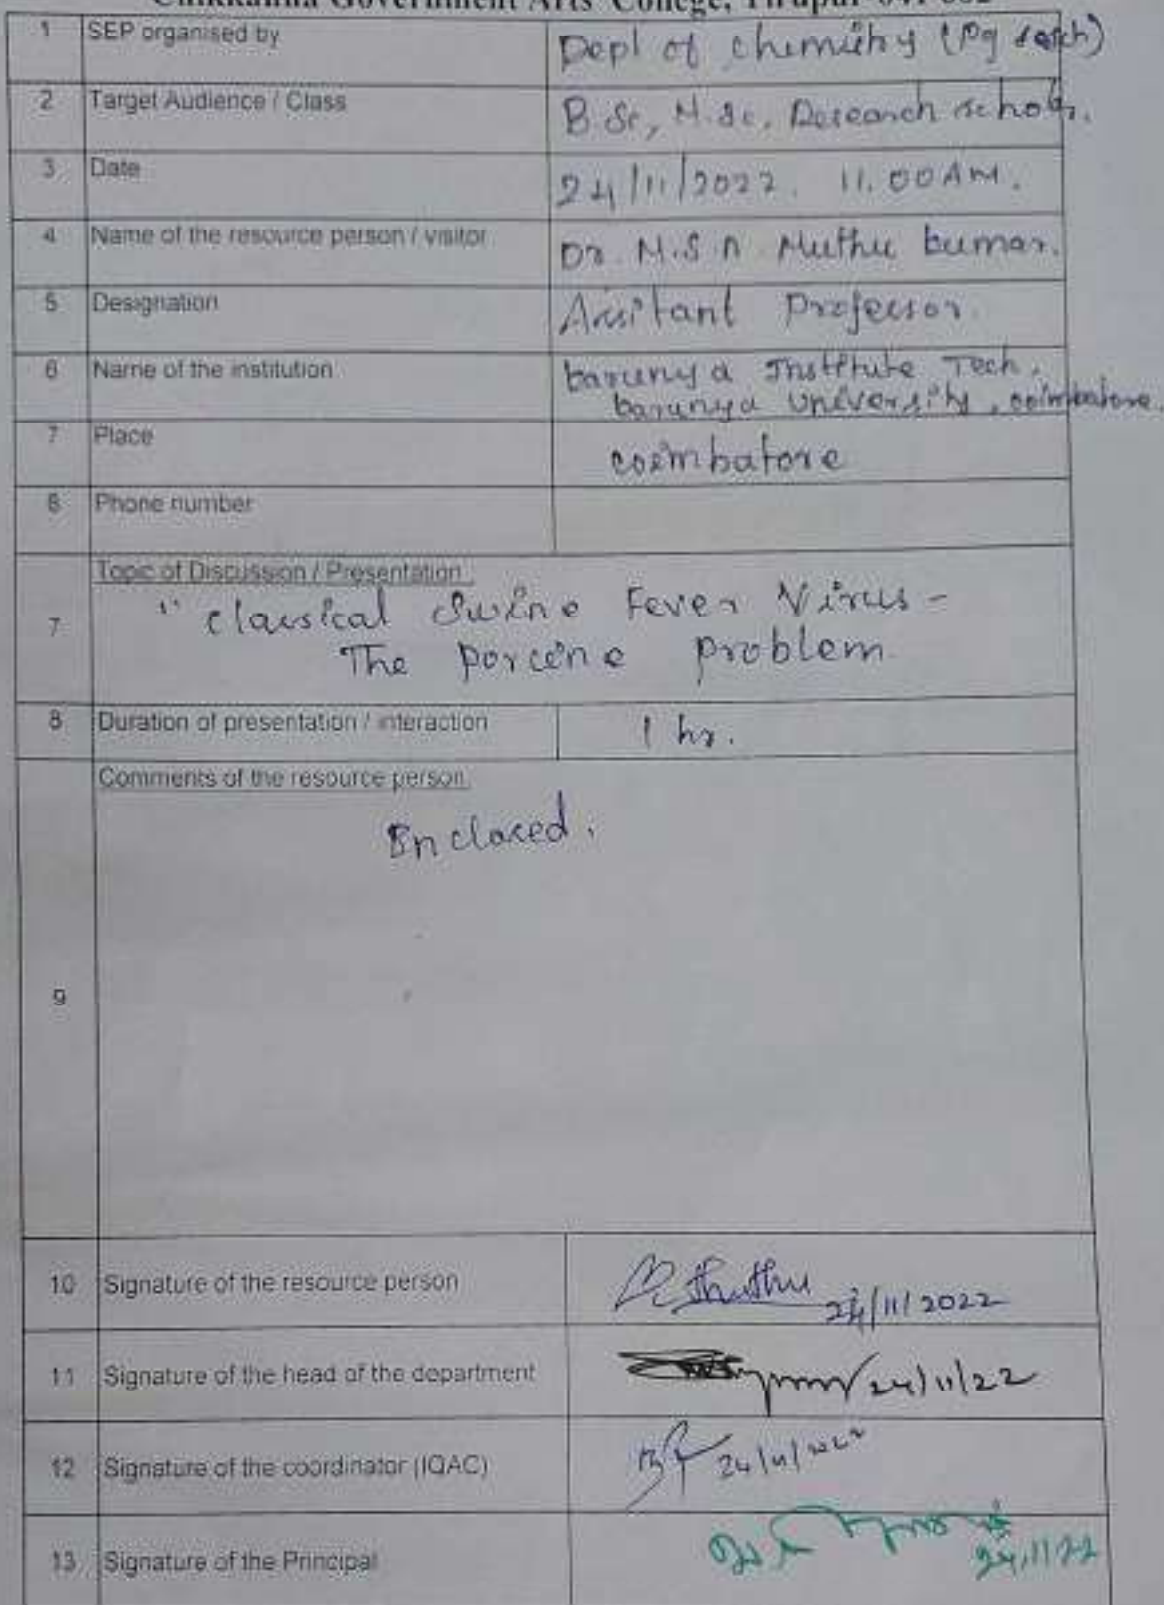 Chikkanna Government Arts College, Tirupur-641 602
1 SEP organised by Dept of chemistry (Pg
2 Target Audience / Class B.Sc, M.Sc, Research scholars.
3 Date 24/11/2022. 11.00 AM.
4 Name of the resource person / visitor Dr. M.S.A. Muthu kumar.
5 Designation Assitant Professor.
6 Name of the institution karunya Institute Tech.
karunya University, coimbatore.
7 Place coimbatore
8 Phone number
Topic of Discussion / Presentation
7 " Classical Swine Fever Virus -
The Porcine Problem
8 Duration of presentation / interaction 1 hr.
Comments of the resource person
Enclosed.
9
10 Signature of the resource person 24/11/2022
11 Signature of the head of the department 24/11/22
12 Signature of the coordinator (IQAC) 24/11/2022
13 Signature of the Principal 24/11/22